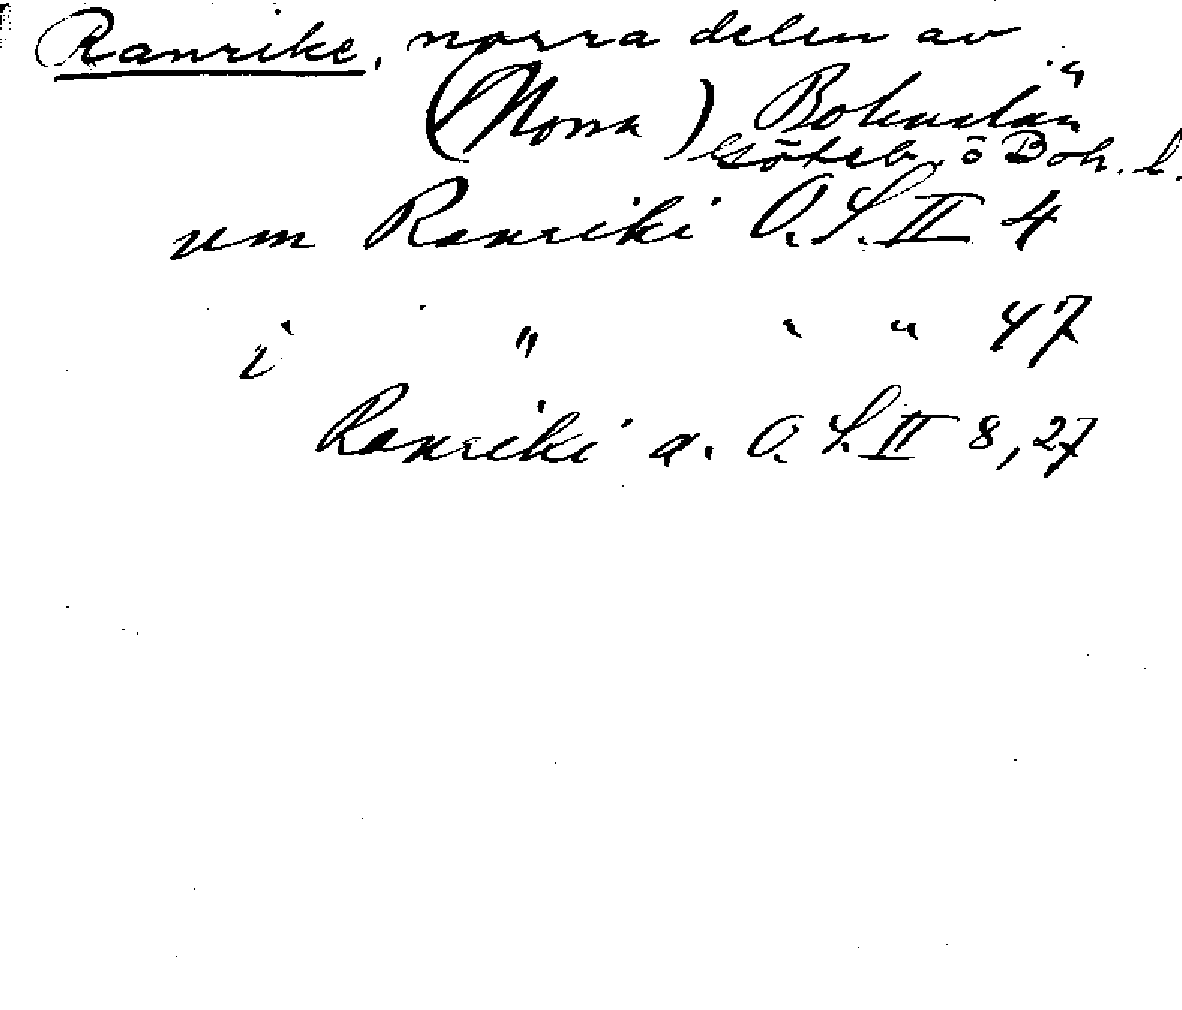 Ranrike, norra delen av
(Norra) Bohuslän
Göteb. o Boh. l.
um Ranriki O.S. II 4
i " " " 47
Ranriki a. O.S. II 8, 27